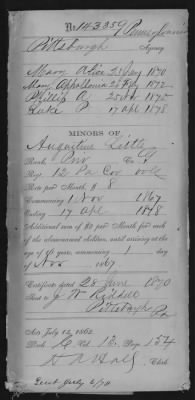 No 143359 Pennsylvania
Pittsburgh
Agency
Mary Alice 23 Jany 1870
Mary Appolonia 25 Feby 1872
Phillip A 25 Nov 1875
Luke P 17 apl 1878
MINORS OF
Augustine Little
Rank Priv Co. G
Reg. 12 Pa Cav Vols
Rate per month $ 8
Commencing 1 Nov 1867
Ending 17 apl 1878
Additional sum of $2 per Month for each
of the abovenamed children, until arriving at the
age of 16 years, commencing 1 day
of Nov 1867
Certificate dated 25 June 1870
Sent to J W Riddell
Pittsburgh
Pa
Act July 14, 1862.
Book C Vol. 12. Page 154
Clerk